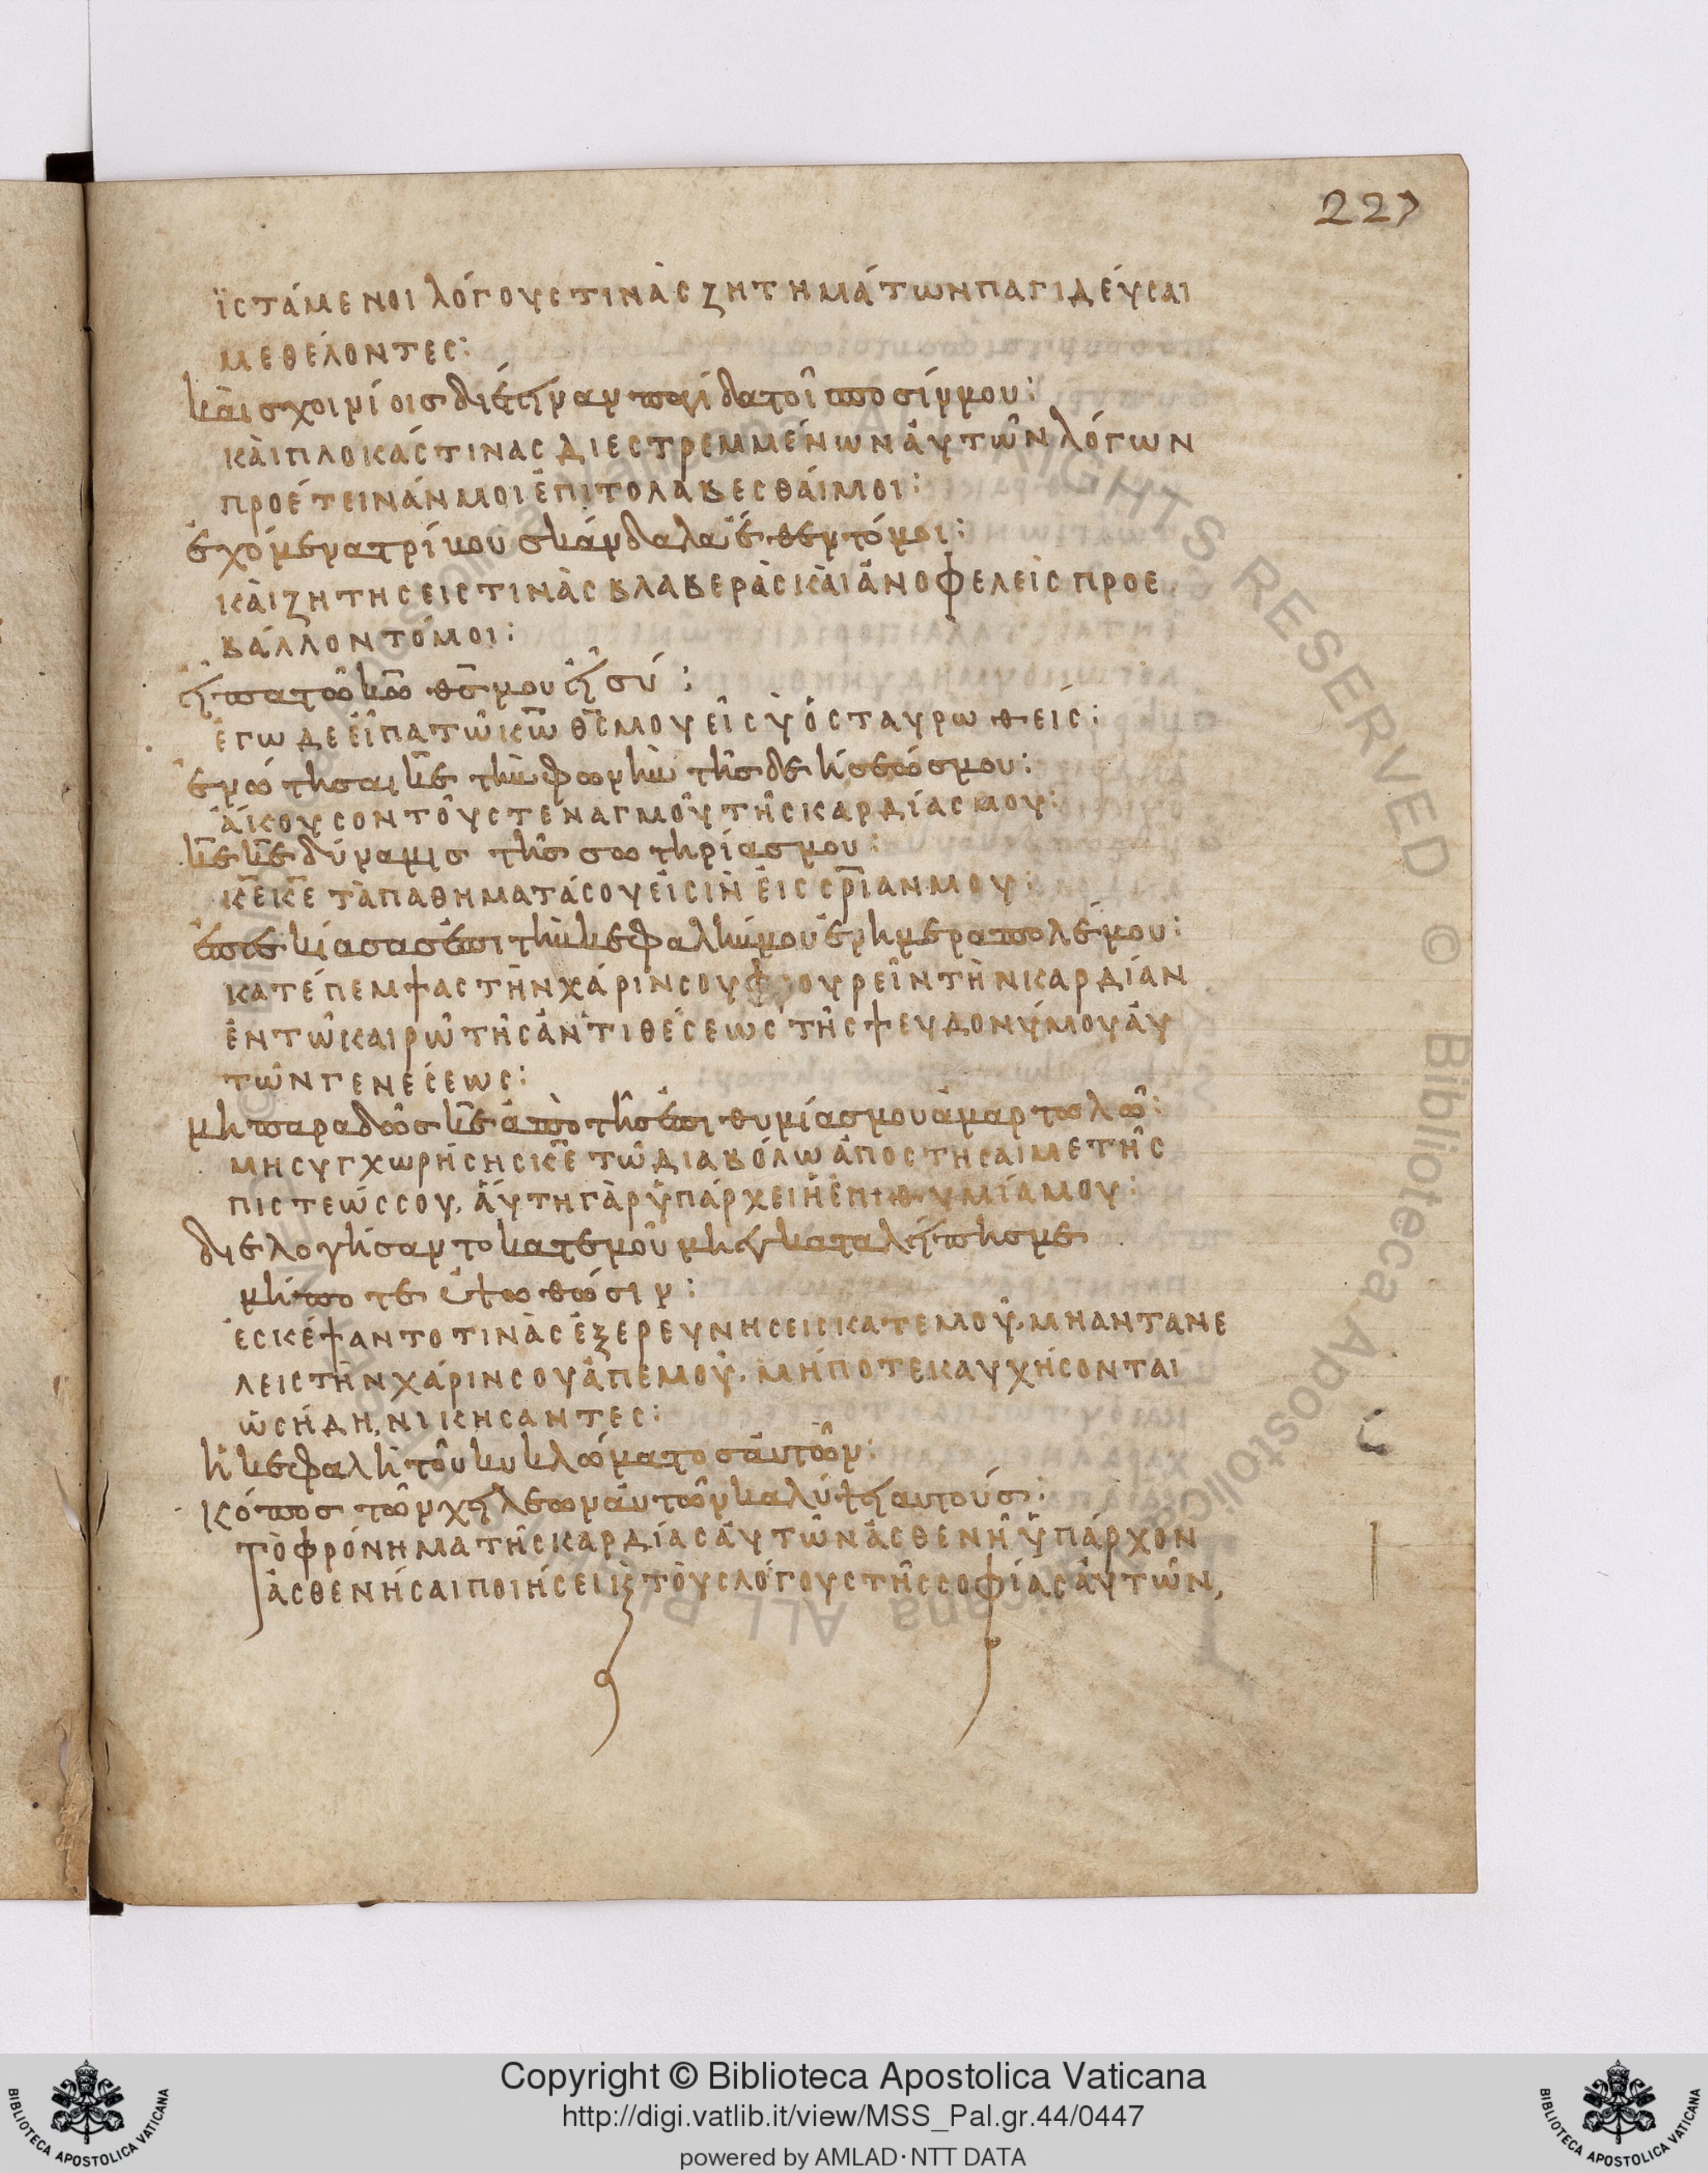 227
ϊστάμενοι λόγους τινὰς ζητημάτων παγιδέυσαι
με θέλοντες:
καὶ σχοινίοις διέτειναν παγίδα τοῖς ποσίν μου:
κὰι πλοκάς τινας διεστρεμμένων ἀυτῶν λόγων
προέτεινάν μοι ἐπι το λαβεσθάι μοι:
ἐχόμενα τρίβου σκάνδαλα ἔθεντό μοι:
κὰι ζητησεις τινὰς βλαβερὰς κὰι ἀνοφελεὶς προε
βάλλοντό μοι:
εἶπα τῶ κ̅ω̅ θ̅ς̅ μου εἶ σύ:
ἐγω δε εἶπα τῶ κ̅ω̅ θ̅ς̅ μου εῖ σὺ ὁ σταυρωθείς:
ἐνώτησαι κ̅ε̅ τὴν φωνὴν τῆς δεήσεώς μου:
ἄκουσον τοῦ στεναγμοῦ τῆς καρδίας μου:
κ̅ε̅ κ̅ε̅ δύναμις τῆς σωτηρίας μου:
κ̅ε̅ κ̅ε̅ τὰ παθηματά σου εἰσὶν ἐις σ̅ρ̅ι̅αν μου:
ἐπεσκίασας ἐπι τὴν κεφαλήν μου ἐν ημερα πολέμου:
κατέπεμψας τὴν χάριν σου φρουρεῖν τὴν καρδίαν
ἐν τῶ καιρῶ τῆς ἀντιθέσεως τῆς ψευδονύμου ἀυ
τῶν γενέσεως:
μη παραδῶς κ̅ε̅ ἀπὸ τῆς ἐπιθυμίας μου ἁμαρτωλῶ:
μη συγχωρήσης κ̅ε̅ τῶ διαβόλω ἀποστησαι με τῆς
πιστεώς σου, ἅυτη γὰρ ὑπάρχει ἡ ἐπιθυμία μου:
διελογήσαντο κατεμοῦ μὴ ἐγκαταλείπης με
μήποτε ὑψωθώσιν:
ἐσκέψαντο τινὰς ἐξερευνησεις κατεμοῦ, μη αντανε
λεις τὴν χάριν σου ἀπεμοῦ, μήποτε καυχήσονται
ὡς ήδη, νικησαντες:
ἡ κεφαλὴ τοῦ κυκλώματος ἀυτῶν:
κόπος τῶν χηλεων ἀυτῶν καλύψει αυτούς:
τὸ φρόνημα τῆς καρδίας ἀυτῶν ἀσθενῆ ὑπάρχον
ἀσθενήσαι ποιήσει κ̀ τὸυς λόγους τῆς σοφίας ἀυτῶν,
Copyright © Biblioteca Apostolica Vaticana
http://digi.vatlib.it/view/MSS_Pal.gr.44/0447
powered by AMLAD·NTT DATA
BIBLIOTECA APOSTOLICA VATICANA
BIBLIOTECA APOSTOLICA VATICANA